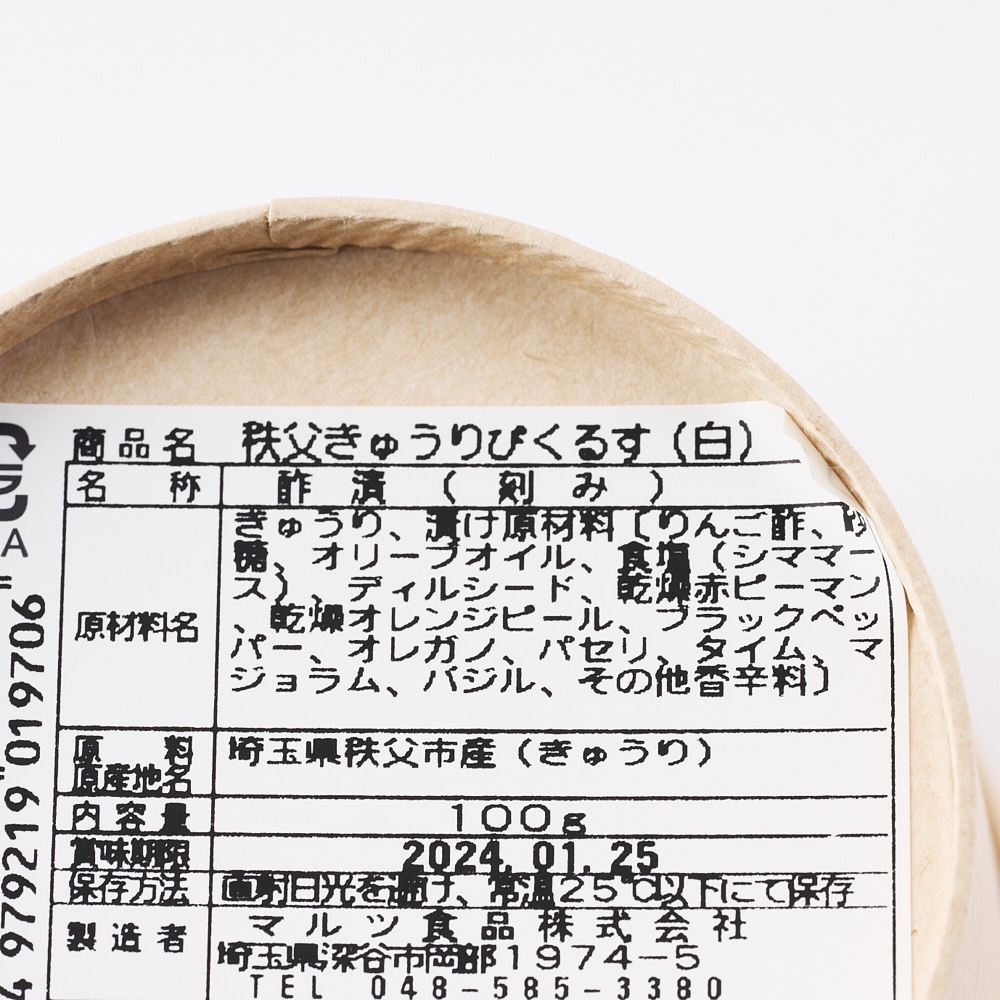 商品名 秩父きゅうりぴくるす(白)
名称 酢漬(刻み)
原材料名 きゅうり、漬け原材料〔りんご酢、砂
糖、オリーブオイル、食塩(シママー
ス)、ディルシード、乾燥赤ピーマン
、乾燥オレンジピール、ブラックペッ
パー、オレガノ、パセリ、タイム、マ
ジョラム、バジル、その他香辛料〕
原料原産地名 埼玉県秩父市産(きゅうり)
内容量 100g
賞味期限 2024.01.25
保存方法 直射日光を避け、常温25℃以下にて保存
製造者 マルツ食品株式会社
埼玉県深谷市岡部1974-5
TEL 048-585-3380
プラ
A
4 979219 019706